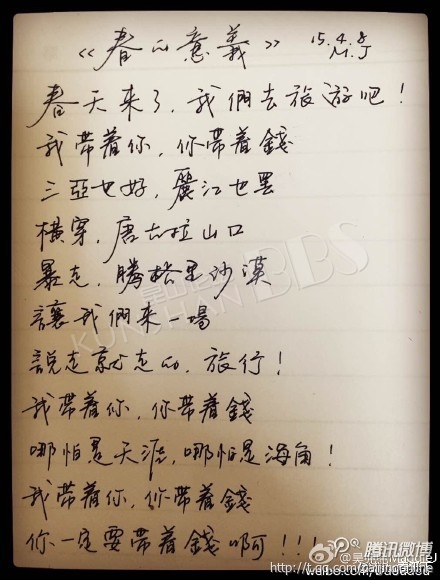 《春的意義》 15.4.8
M.J
春天来了，我們去旅游吧！
我带着你，你带着錢
三亞也好，麗江也罢
横穿，唐古拉山口
暴走，腾格里沙漠
讓我們来一場
説走就走的，旅行！
我带着你，你带着錢
哪怕是天涯，哪怕是海角！
我带着你，你带着錢
你一定要带着錢啊！！！
KUNSHAN BBS
腾讯微博